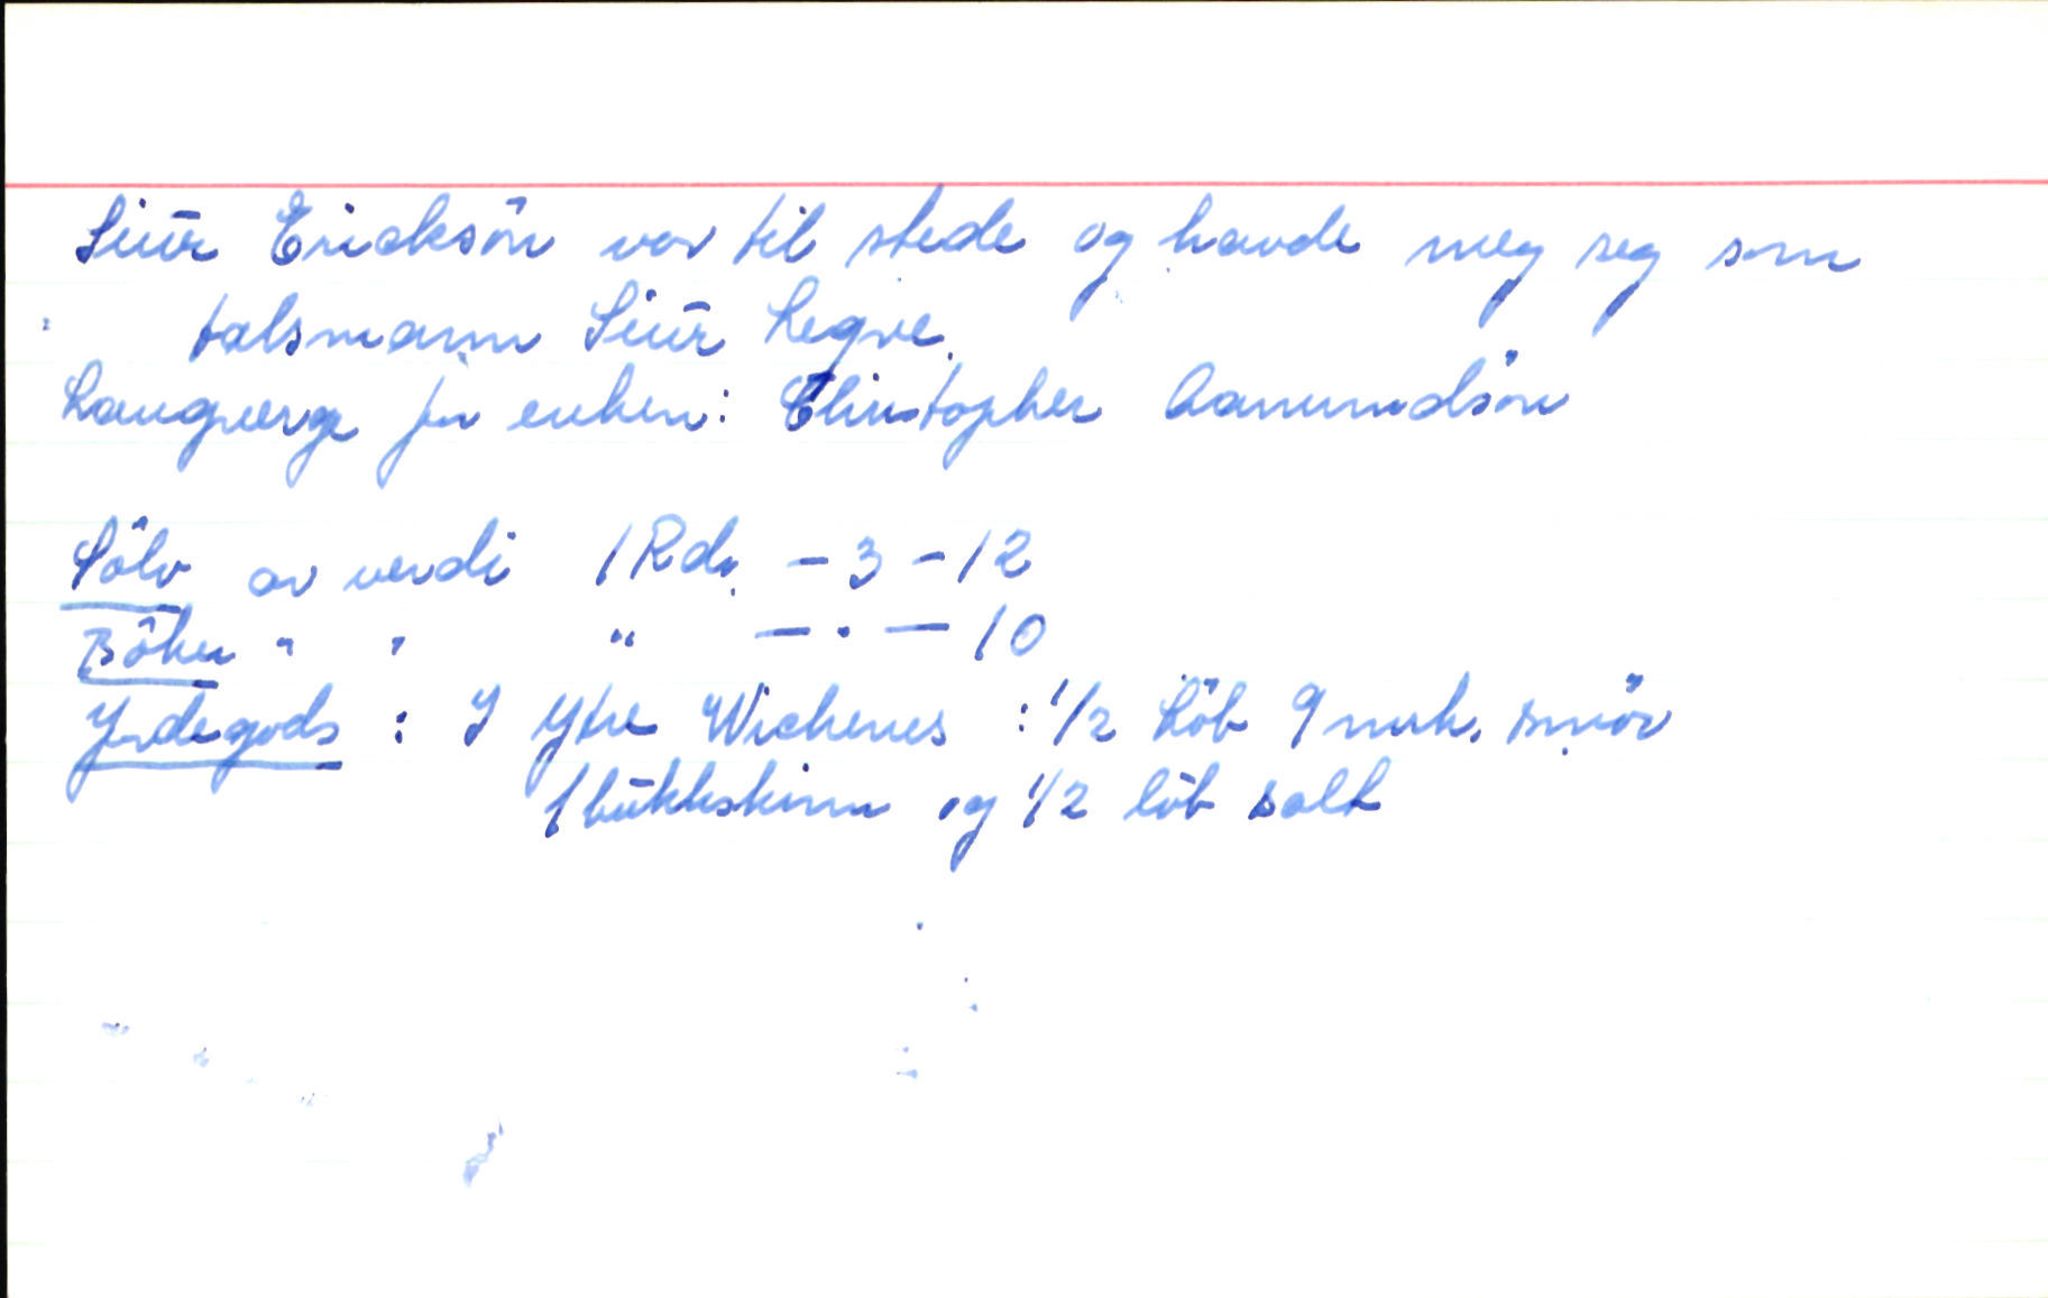 Siūr Ericksön var til stede og havde meg seg som
talsmann Siūr Legve.
Laugverge for enken: Christopher Aamundsön
Sölv av verdi 1 Rdr. - 3 - 12
Böker " " " — . — 10
Jordegods : I Ytre Wichenes : 1/2 Löb 9 mrk. smör
1 būkkskinn og 1/2 löb salt